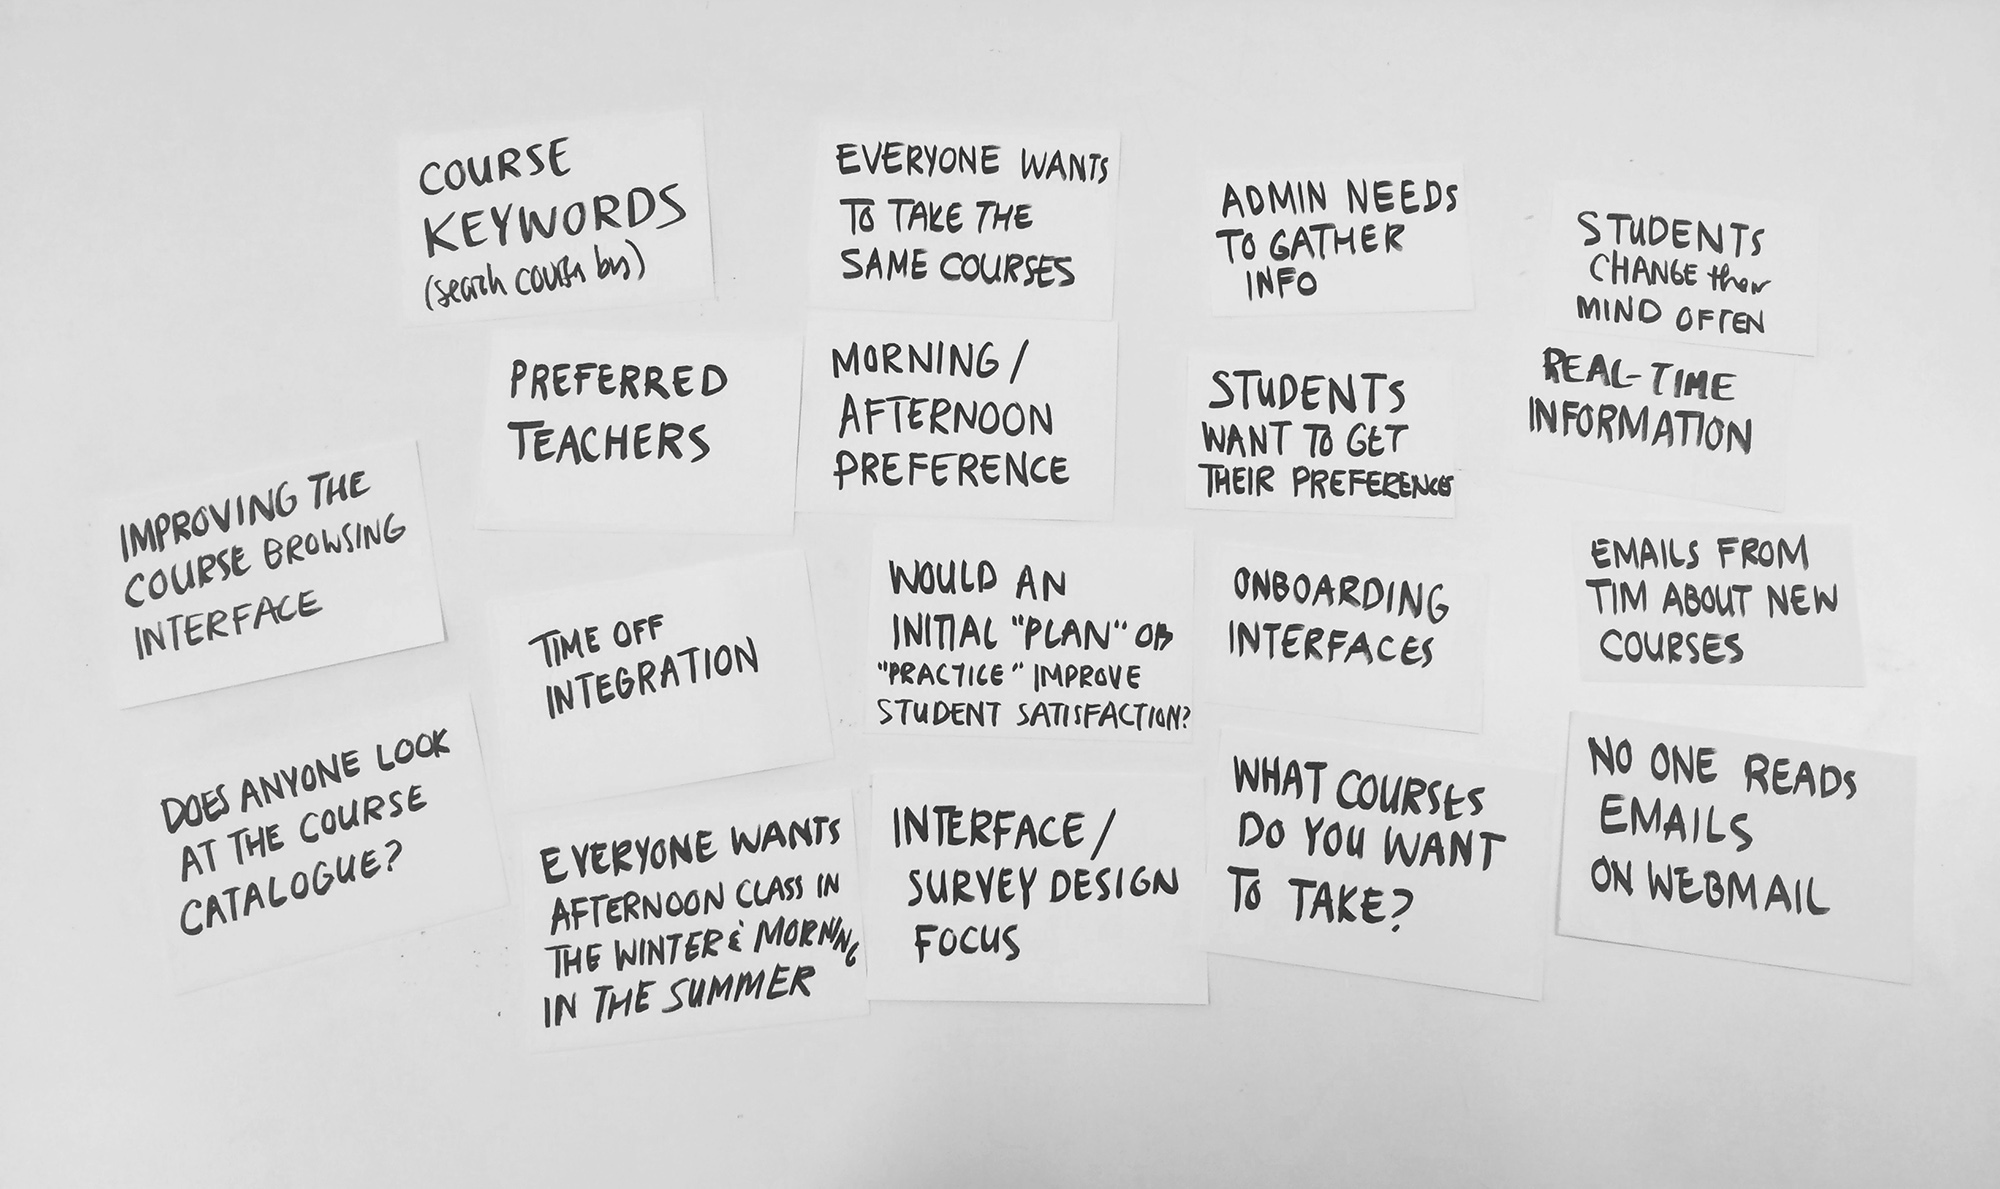 COURSE
KEYWORDS
(search course by)
EVERYONE WANTS
TO TAKE THE
SAME COURSES
ADMIN NEEDS
TO GATHER
INFO
STUDENTS
CHANGE their
MIND OFTEN
PREFERRED
TEACHERS
MORNING /
AFTERNOON
PREFERENCE
STUDENTS
WANT TO GET
THEIR PREFERENCES
REAL-TIME
INFORMATION
IMPROVING THE
COURSE BROWSING
INTERFACE
TIME OFF
INTEGRATION
WOULD AN
INITIAL "PLAN" OR
"PRACTICE" IMPROVE
STUDENT SATISFACTION?
ONBOARDING
INTERFACES
EMAILS FROM
TIM ABOUT NEW
COURSES
DOES ANYONE LOOK
AT THE COURSE
CATALOGUE?
EVERYONE WANTS
AFTERNOON CLASS IN
THE WINTER & MORNING
IN THE SUMMER
INTERFACE /
SURVEY DESIGN
FOCUS
WHAT COURSES
DO YOU WANT
TO TAKE?
NO ONE READS
EMAILS
ON WEBMAIL